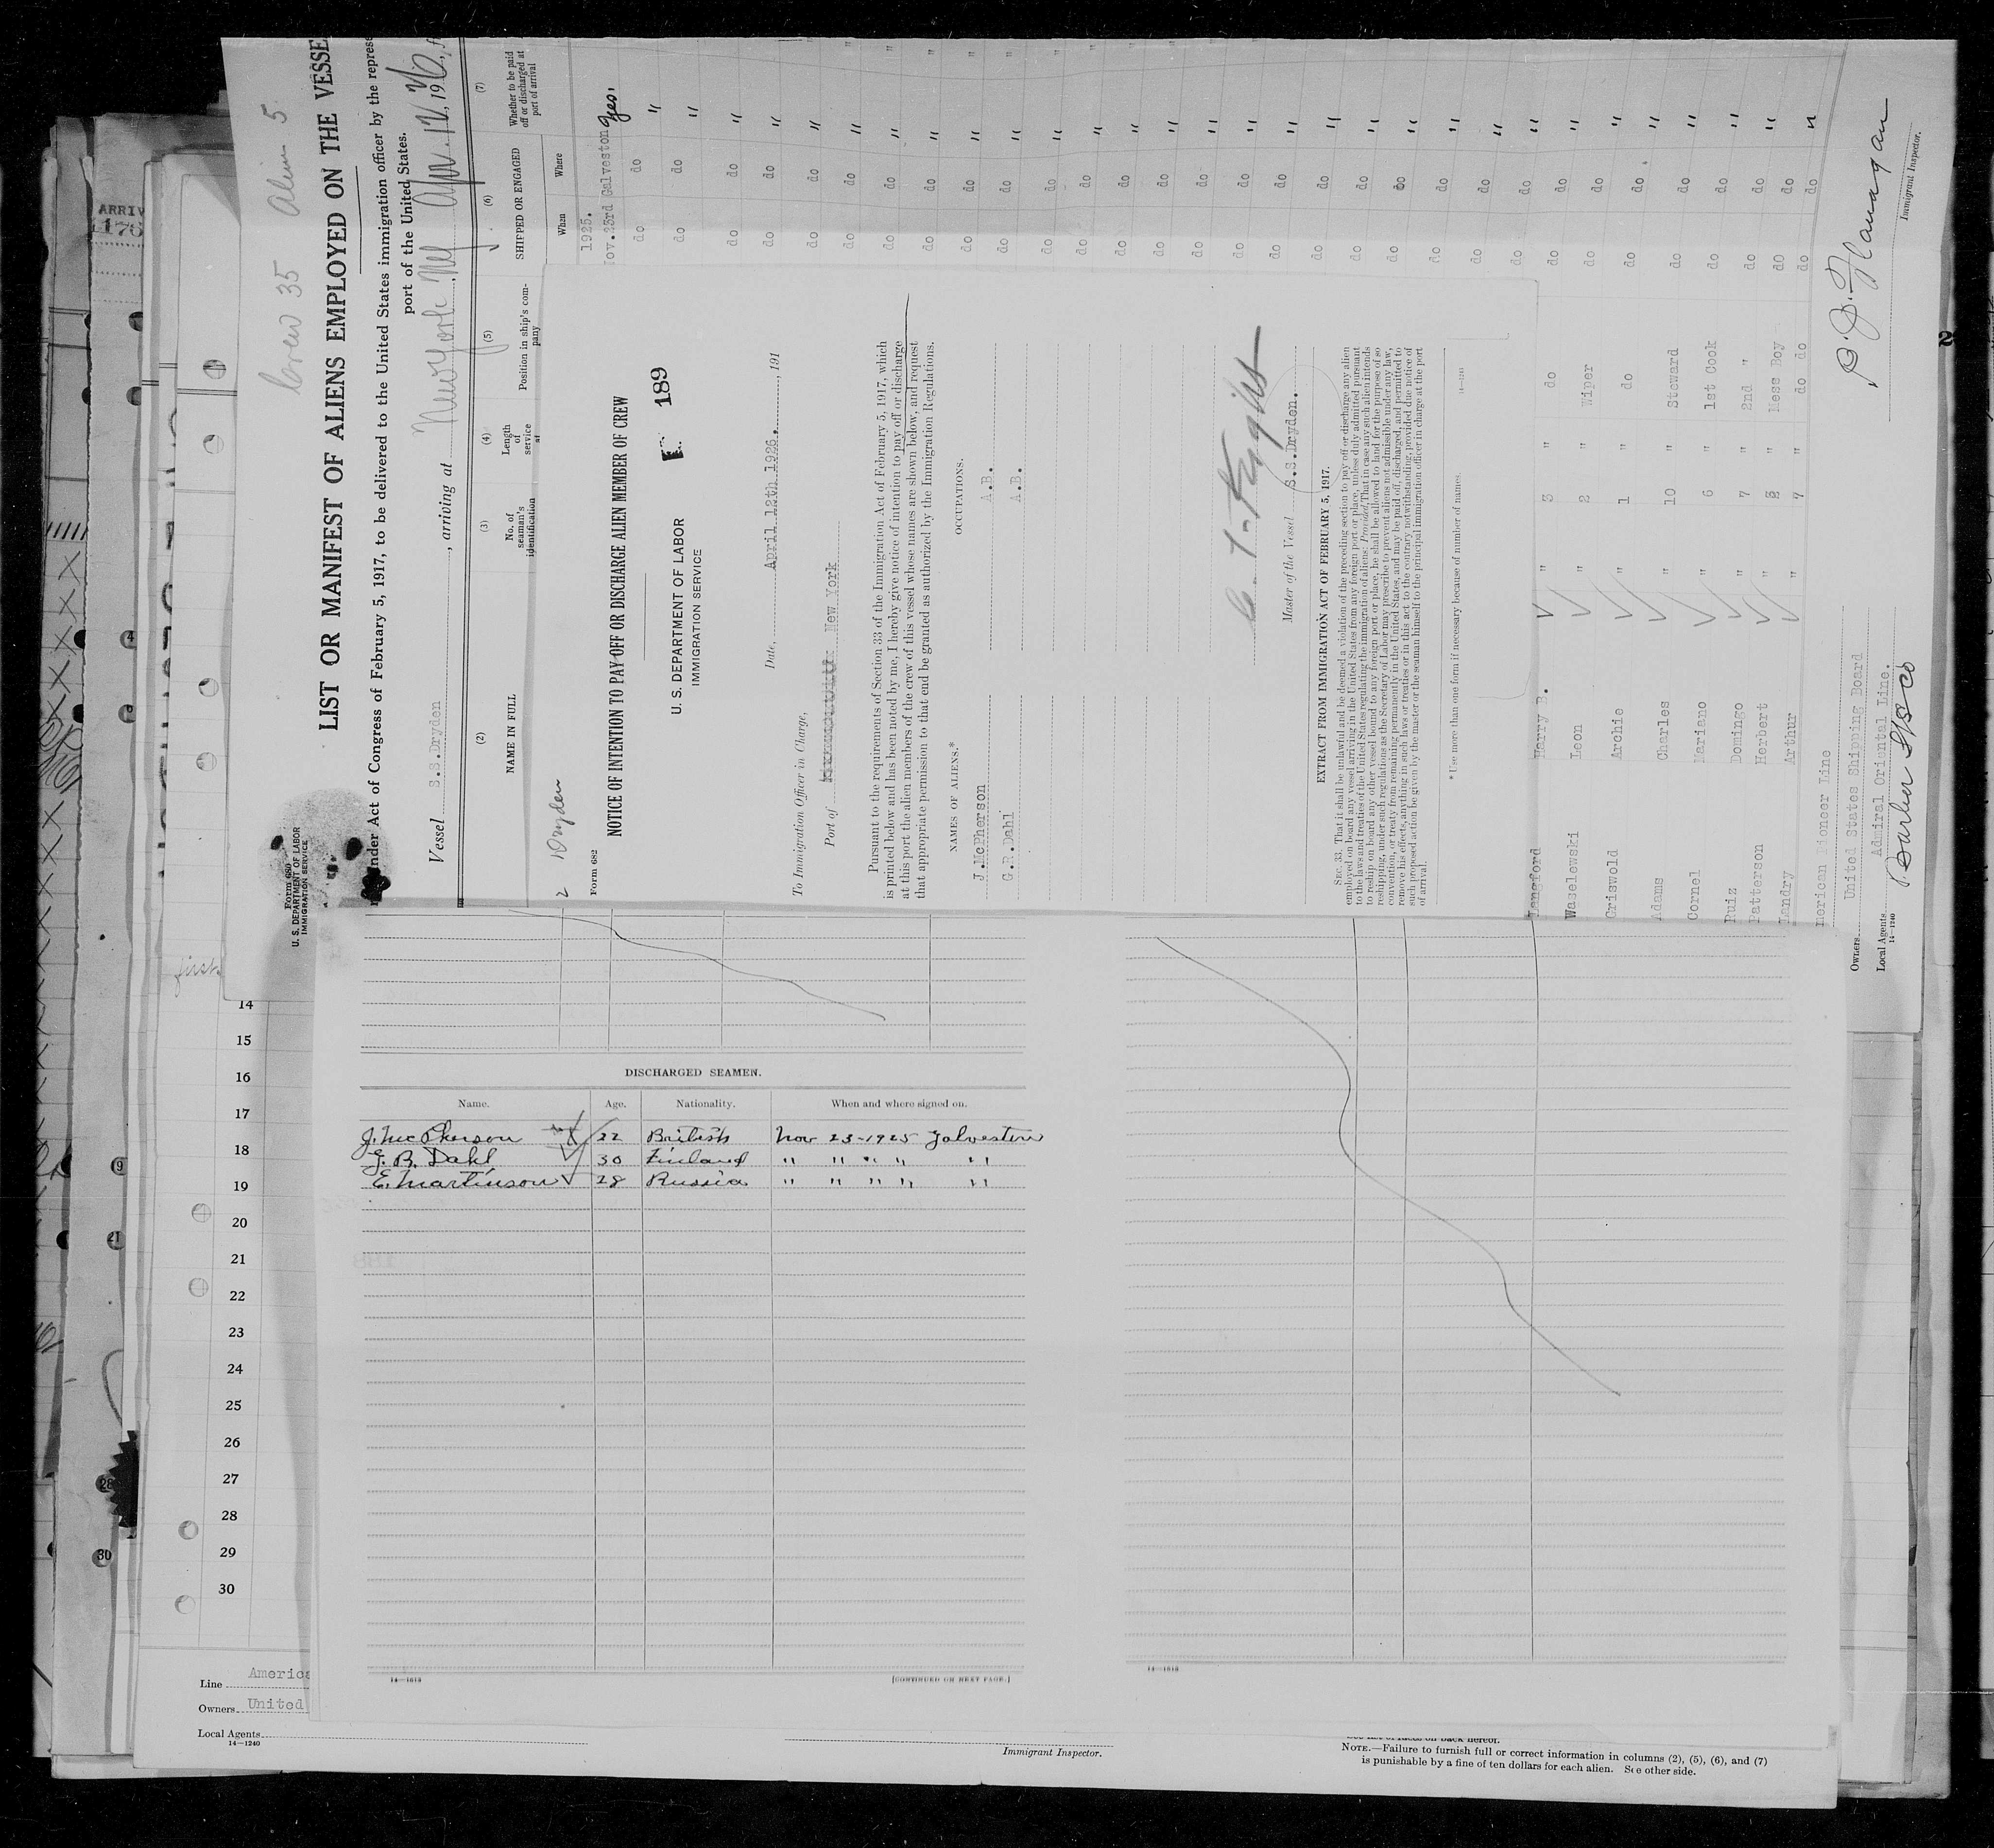 Crew 35 Alien 5
Form 680
U. S. DEPARTMENT OF LABOR
IMMIGRATION SERVICE
LIST OR MANIFEST OF ALIENS EMPLOYED ON THE VESSE
nder Act of Congress of February 5, 1917, to be delivered to the United States immigration officer by the represe
port of the United States.
Vessel S.S.Dryden, arriving at New York NY Apr. 12, 1926
(2) (3) (4) (5) (6) (7)
NAME IN FULL
No. of seaman's identification
Length of service at
Position in ship's company
SHIPPED OR ENGAGED
When Where
Whether to be paid off or discharged at port of arrival
1925.
ov.23rd Galveston yes.
do do "
Langford Harry B. " 3 " do do do "
Waselewski Leon " 2 " Wiper do do "
Griswold Archie " 1 " do do do "
Adams Charles " 10 " Steward do do "
Cornel Mariano " 6 " 1st Cook do do "
Ruiz Domingo " 7 " 2nd " do do "
Patterson Herbert " " Mess Boy do do "
Landry Arthur " 7 " do do do do "
merican Pioneer Line
Owners United States Shipping Board
Local Agents Admiral Oriental Line.
Barber SS Co
14—1240
Immigrant Inspector.
2 Dryden
Form 682
NOTICE OF INTENTION TO PAY OFF OR DISCHARGE ALIEN MEMBER OF CREW
E. 189
U. S. DEPARTMENT OF LABOR
IMMIGRATION SERVICE
Date, April 12th 1926., 191
To Immigration Officer in Charge,
Port of New York
Pursuant to the requirements of Section 33 of the Immigration Act of February 5, 1917, which
is printed below and has been noted by me, I hereby give notice of intention to pay off or discharge
at this port the alien members of the crew of this vessel whose names are shown below, and request
that appropriate permission to that end be granted as authorized by the Immigration Regulations.
NAMES OF ALIENS.* OCCUPATIONS.
J.McPherson A.B.
G.R.Dahl A.B.
Master of the Vessel S.S.Dryden.
EXTRACT FROM IMMIGRATION ACT OF FEBRUARY 5, 1917.
SEC. 33. That it shall be unlawful and be deemed a violation of the preceding section to pay off or discharge any alien
employed on board any vessel arriving in the United States from any foreign port or place, unless duly admitted pursuant
to the laws and treaties of the United States regulating the immigration of aliens: Provided, That in case any such alien intends
to reship on board any other vessel bound to any foreign port or place, he shall be allowed to land for the purpose of so
reshipping, under such regulations as the Secretary of Labor may prescribe to prevent aliens not admissible under any law,
convention, or treaty from remaining permanently in the United States, and may be paid off, discharged, and permitted to
remove his effects, anything in such laws or treaties or in this act to the contrary notwithstanding, provided due notice of
such proposed action be given by the master or the seaman himself to the principal immigration officer in charge at the port
of arrival.
* Use more than one form if necessary because of number of names.
14—1241
ARRIV
176
first
14
15
16
17
18
19
20
21
22
23
24
25
26
27
28
29
30
DISCHARGED SEAMEN.
Name. Age. Nationality. When and where signed on.
J. McPherson 22 British Nov 23-1925 Galveston
G. R. Dahl 30 Finland " " " " "
E. Martinson 28 Russia " " " " "
14—1618
[CONTINUED ON NEXT PAGE.]
14—1618
Line America
Owners United
Local Agents
14—1240
Immigrant Inspector.
NOTE.—Failure to furnish full or correct information in columns (2), (5), (6), and (7)
is punishable by a fine of ten dollars for each alien. See other side.